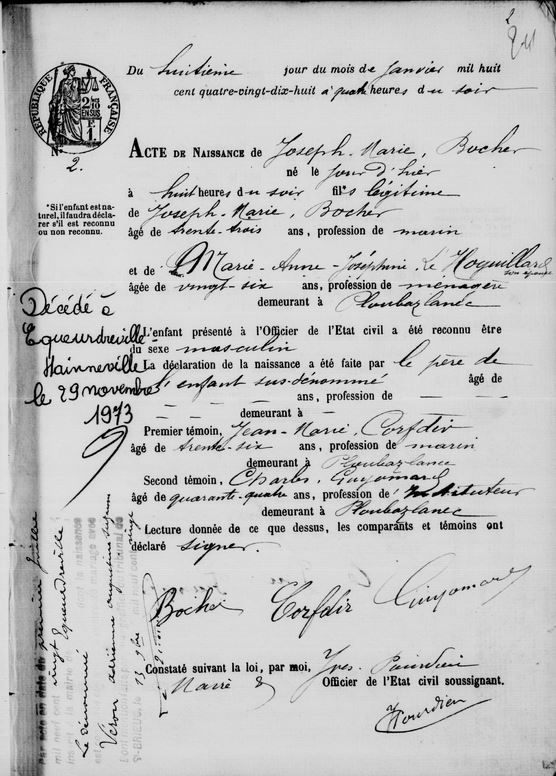 2
241
RÉPUBLIQUE FRANÇAISE
2/10 EN SUS
F 1
N° 2.
Du huitième jour du mois de Janvier mil huit
cent quatre-vingt-dix-huit à quatre heures du soir
ACTE DE NAISSANCE de Joseph-Marie, Bocher
né le jour d'hier
à huit heures du soir fils légitime
*Si l'enfant est na-
turel, il faudra décla-
rer s'il est reconnu
ou non reconnu.
de Joseph-Marie, Bocher
âgé de trente-trois ans, profession de marin
et de Marie-Anne-Joséphine, Le Hoquillard
son épouse
âgée de vingt-six ans, profession de ménagère
demeurant à Ploubazlanec
L'enfant présenté à l'Officier de l'Etat civil a été reconnu être
du sexe masculin
La déclaration de la naissance a été faite par le père de
l'enfant sus-dénommé âgé de
— — — ans, profession de — —
demeurant à — —
Premier témoin, Jean-Marie, Corfdir
âgé de trente-six ans, profession de marin
demeurant à Ploubazlanec
Second témoin, Charles, Guyomard
âgé de quarante-quatre ans, profession d'Instituteur
demeurant à Ploubazlanec
Lecture donnée de ce que dessus, les comparants et témoins ont
déclaré signer.
Bocher Corfdir Guyomard
Constaté suivant la loi, par moi, Yves Pourdieu
Maire & Officier de l'Etat civil soussigné.
Décédé à
Equeurdreville-
Hainneville
le 29 novembre
1973
Par acte en date du premier juillet
mil neuf cent vingt
Equeurdreville
Le dénommé